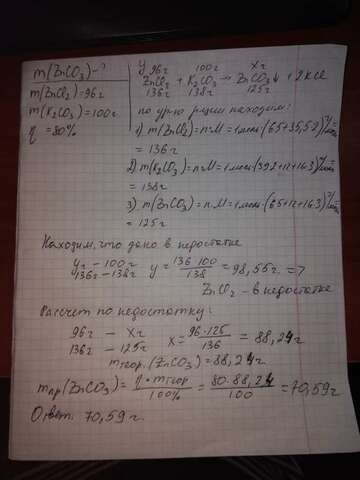 m(ZnCO3)-?
m(ZnCl2)=96г
m(K2CO3)=100г
η =80%
y
96г 100г Xг
ZnCl2 + K2CO3 → ZnCO3↓ + 2KCl
136г 138г 125г
по ур-ю р-ции находим:
1) m(ZnCl2)=n·M=1моль·(65+35,5·2)г/моль
= 136г
2) m(K2CO3)=n·M=1моль·(39·2+12+16·3)г/моль
= 138г
3) m(ZnCO3)=n·M=1моль·(65+12+16·3)г/моль
= 125г
Находим, что дано в недостатке
yг - 100г
136г - 138г y = 136·100/138 = 98,55г =>
ZnCl2 - в недостатке
Рассчет по недостатку:
96г - Xг
136г - 125г X = 96·125/136 = 88,24г
mтеор.(ZnCO3)=88,24г
mпр(ZnCO3)= η·mтеор/100% = 80·88,24/100 =70,59г
Ответ: 70,59г.